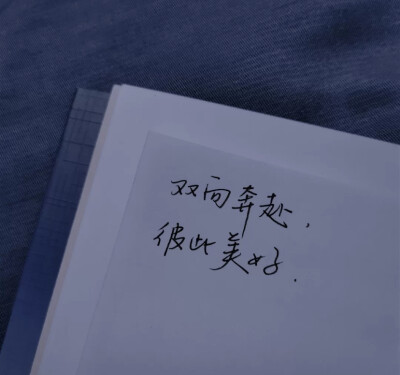 双向奔赴，
彼此美好.